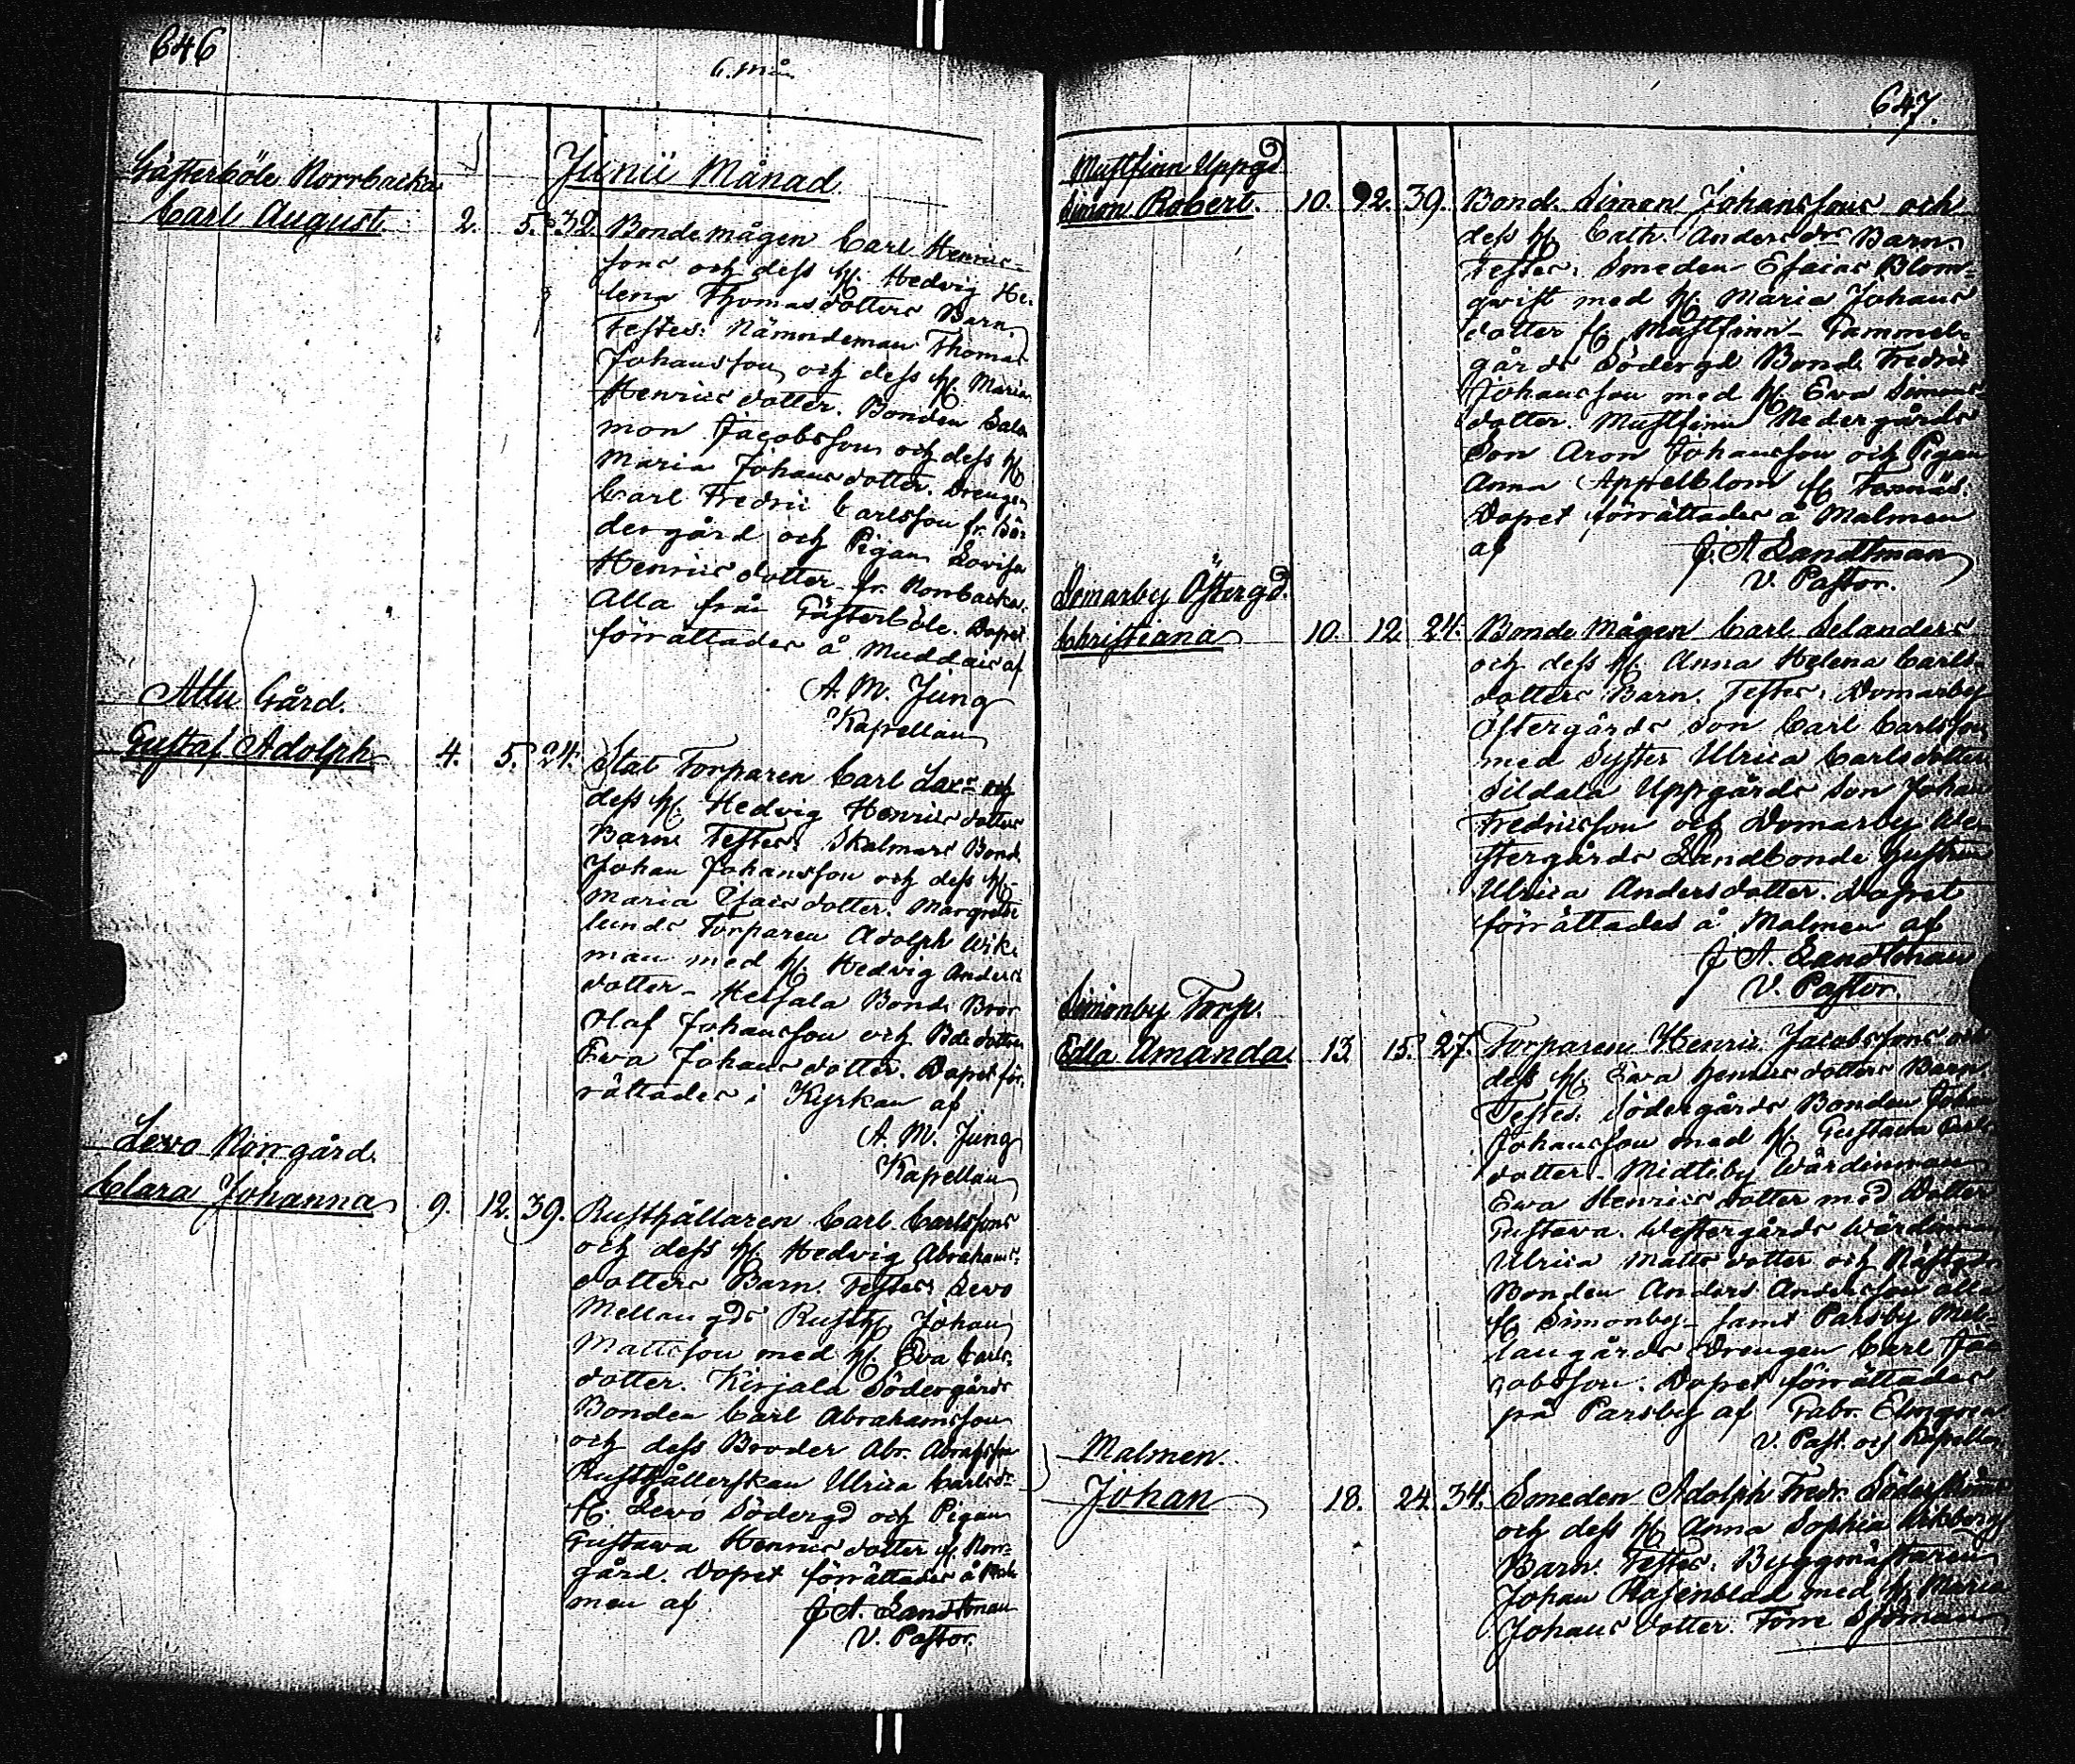 646
6. mån.
Junii Månad.
Gästerböle Norrbacka
Carl August. 2. 5. 32. Bondemågen Carl Henric-
sons och dess h. Hedvig He-
lena Thomasdotters Barn.
Testes: Nämndeman Thomas
Johansson och dess h. Maria
Henricsdotter. Bonden Salo
mon Jacobsson och dess h.
Maria Johansdotter. Drengen
Carl Fredric Carlsson fr. Sö-
dergård och Pigan Lovisa
Henricsdotter fr. Norrbacka.
Alla från Gästerböle. Dopet
förrättades å Muddais af
A. M. Jung
Kapellan
Attu Gård.
Gustaf Adolph 4. 5. 24. Stat Torparen Carl Lax och
dess h. Hedvig Henricsdotters
Barn. Testes: Skalmars Bond.
Johan Johansson och dess h.
Maria Esaisdotter. Margrethe
lunds Torparen Adolph Wik-
man med h. Hedvig Anders
dotter - Bond. Bror
Olaf Johansson och Bdedottren
Eva Johansdotter. Dopet för-
rättades i Kyrkan af
A. M. Jung
Kapellan
Levo Norrgård.
Clara Johanna 9. 12. 39. Rusthållaren Carl Carlssons
och dess h. Hedvig Abrahams-
dotters Barn. Testes: Levo
Mellangds Rusth. Johan
Mattsson med h. Eva Carls-
dotter. Kirjala Södergårds
Bonden Carl Abrahamsson
och dess Broder Abr. Abrahsson
Rusthållerskan Ulrica Carlsdr
fr. Levo Södergd och Pigan
Gustava Henricsdotter fr. Norr-
gård. Dopet förrättades å Mal-
men af
J. A. Sandtman
V. Pastor.
647.
Mustfinn Uppgd
Simon Robert. 10. 12. 39. Bond. Simon Johanssons och
dess h. Cath. Andersdrs Barn.
Testes: Smeden Esaias Blom-
qvist med h. Maria Johans
dotter fr. Mustfinn - Gammel-
gårds Södergd Bond. Fredric
Johansson med h. Eva Simons-
dotter. Mustfinn Nedergårds
Son Aron Johansson och Pigan
Anna Appelblom fr.
Dopet förrättades å Malmen
af J. A. Sandtman
V. Pastor.
Domarby Östergd.
Christiana 10. 12. 24. Bonde Mågen Carl Selanders
och dess h. Anna Helena Carls-
dotters Barn. Testes: Domarby
Östergårds Son Carl Carlsson
med Syster Ulrica Carlsdotter
Sildala Uppgårds Son Johan
Fredricsson och Domarby We-
stergårds Landbonde hustru
Ulrica Andersdotter. Dopet
förrättades å Malmen af
J. A. Sandtman
V. Pastor.
Simonby Torp.
Edla Amanda. 13. 15. 27. Torparen Henric Jacobssons och
dess h. Eva Henricsdotters Barn.
Testes: Södergårds Bonden Johan
Johansson med h. Gustava Carls-
dotter - Midtiby Wärdinnan
Ewa Henricsdotter med Dotter
Gustava. Westergårds Wärdinnan
Ulrica Mattsdotter och
Bonden Anders Andersson alla
fr. Simonby - samt Parsby Mel-
langårds Drengen Carl Ja-
cobsson. Dopet förrättades
på Parsby af Gabr. Elmgren
V. Past. och Kapellan
Malmen.
Johan 18. 24. 34. Smeden Adolph Fredr. Söderströms
och dess h. Anna Sophia Wikberg
Barn. Testes: Byggmästaren
Johan Rosenblad med h. Maria
Johansdotter. Förre Sjöman